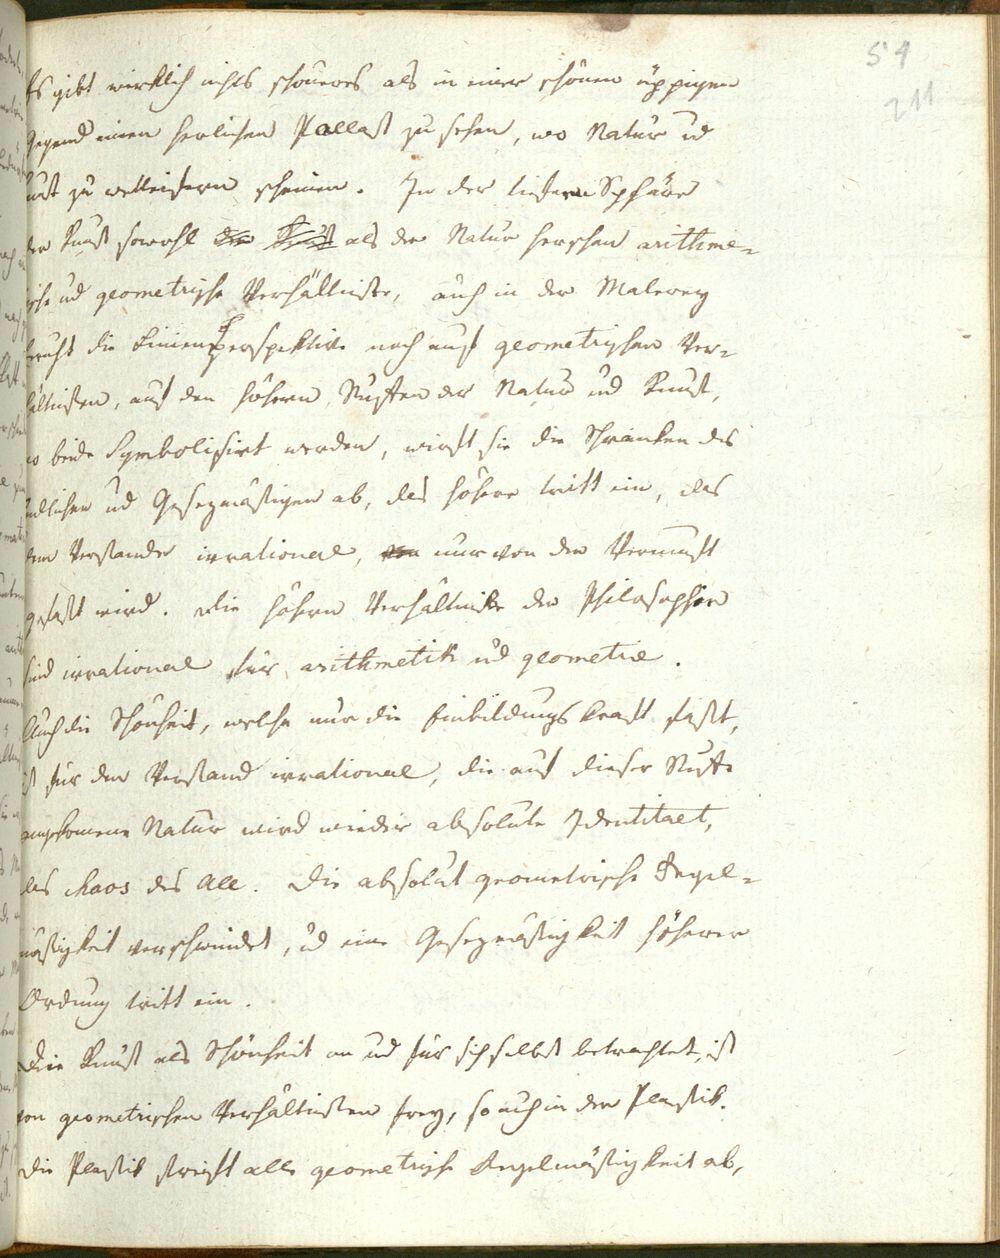 54
211
Es gibt wirklich nichts schöneres als in einer schönen üppigen
Gegend einen herlichen Pallast zu sehen, wo Natur ud
Kunst zu wetteifern scheinen. In der tiefern Sphäre
der Kunst sowohl die Kunst als der Natur herschen arithme-
tische ud geometrische Verhältniße, auch in der Malerey
beruht die Linienperspektive noch auf geometrischen Ver-
hältnißen, auf den höhern Stuffen der Natur ud Kunst,
wo beide Symbolisirt werden, wirft sie die Schranken des
endlichen ud Gesezmäßigen ab, das höhere tritt ein, das
dem Verstande irrational, nur von der Vernunft
gefaßt wird. Die höhern Verhältniße der Philosophie
sind irrational für arithmetik ud geometrie.
Auch die Schönheit, welche nur die Einbildungskraft faßt,
ist für den Verstand irrational, die auf dieser Stuffe
angekomene Natur wird wieder absolute Identitaet,
das chaos des All. Die absolut geometrische Regel-
mäßigkeit verschwindet, ud eine Gesezmäßigkeit höherer
Ordnung tritt ein.
Die Kunst als Schönheit an ud für sich selbst betrachtet, ist
von geometrischen Verhältnißen frey, so auch in der Plastik.
Die Plastik streift alle geometrische Regelmäßigkeit ab,